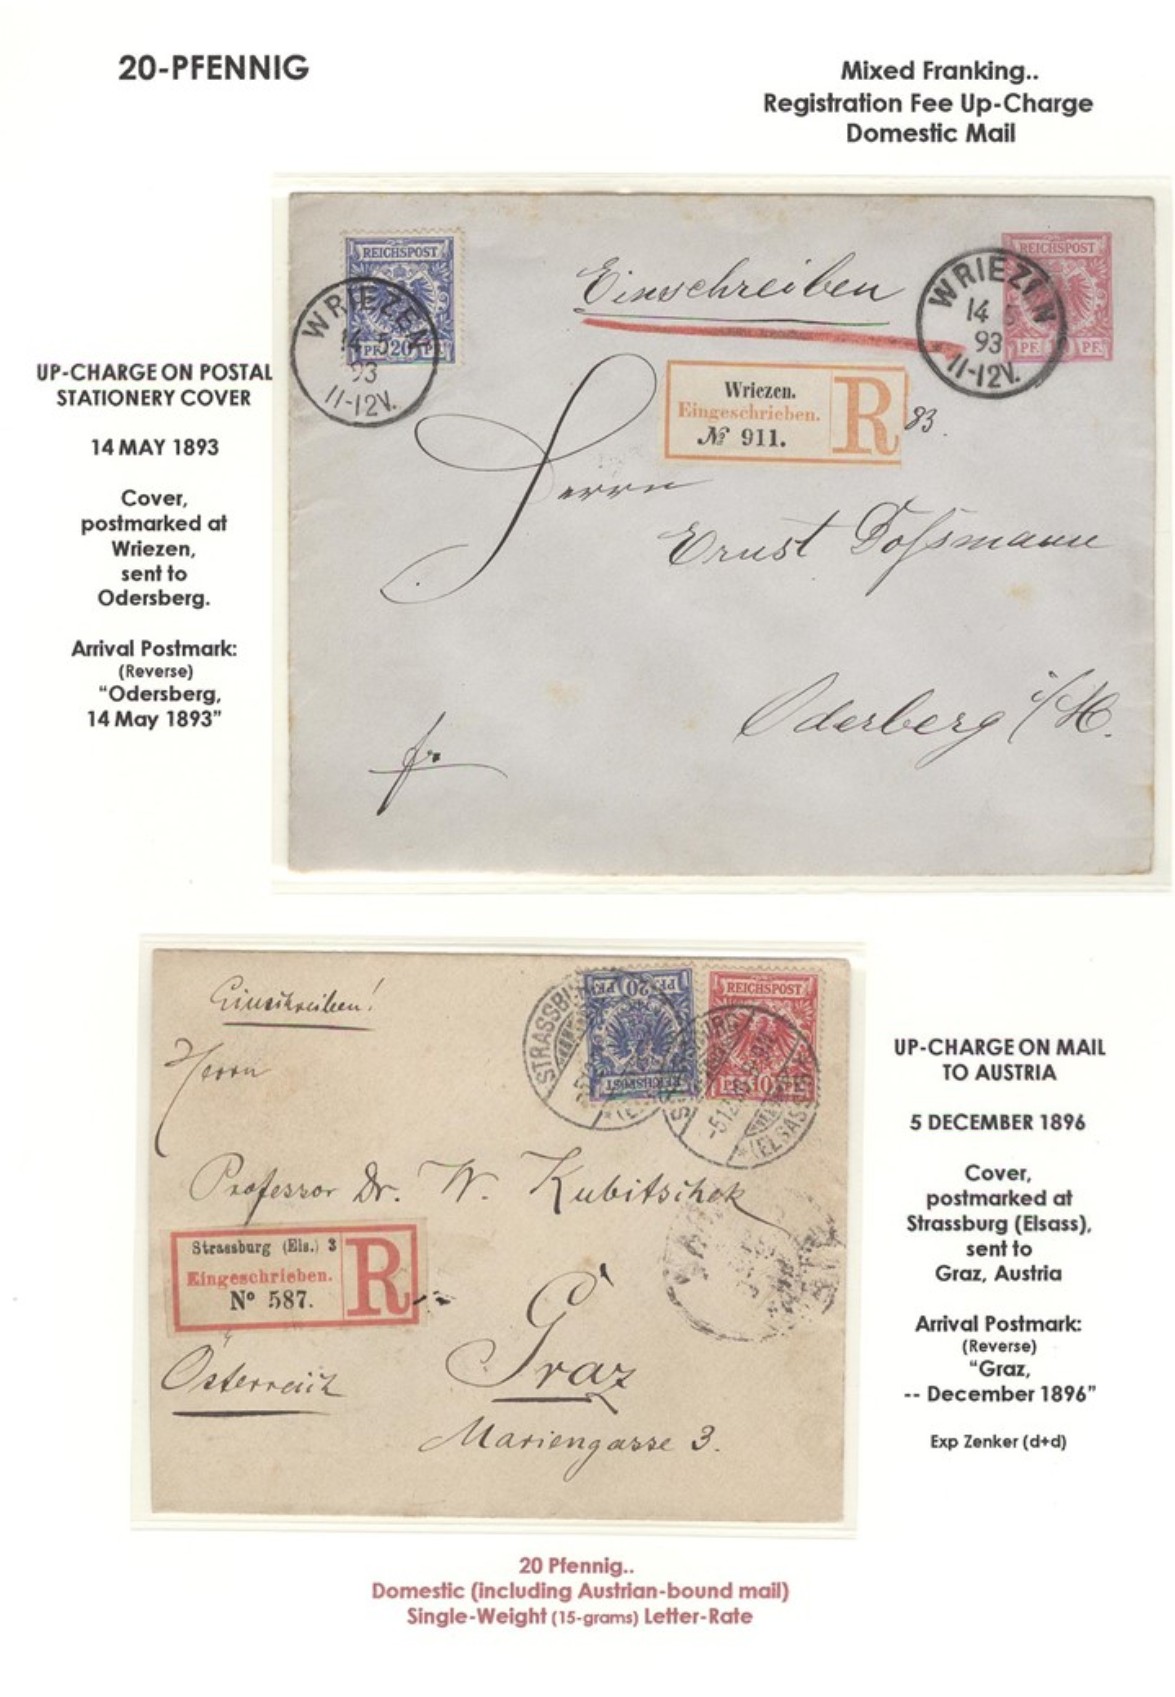 20-PFENNIG
Mixed Franking..
Registration Fee Up-Charge
Domestic Mail
UP-CHARGE ON POSTAL
STATIONERY COVER
14 MAY 1893
Cover,
postmarked at
Wriezen,
sent to
Odersberg.
Arrival Postmark:
(Reverse)
“Odersberg,
14 May 1893”
REICHSPOST
PF. 20 PF.
WRIEZEN
14 5
93
11-12V.
Einschreiben
REICHSPOST
PF. PF.
WRIEZEN
14 5
93
11-12V.
Wriezen.
Eingeschrieben.
№ 911.
R
83.
Herrn
Ernst Doſsmann
Oderberg i/M.
fr.
Einschreiben!
PF. 20 PF.
REICHSPOST
STRASSBURG
REICHSPOST
PF. 10 PF.
-5 12
*(ELSASS)
Herrn
Professor Dr. W. Kubitschek
Strassburg (Els.) 3
Eingeschrieben.
Nº 587.
R
Graz
Österreich
Mariengasse 3.
UP-CHARGE ON MAIL
TO AUSTRIA
5 DECEMBER 1896
Cover,
postmarked at
Strassburg (Elsass),
sent to
Graz, Austria
Arrival Postmark:
(Reverse)
“Graz,
-- December 1896”
Exp Zenker (d+d)
20 Pfennig..
Domestic (including Austrian-bound mail)
Single-Weight (15-grams) Letter-Rate